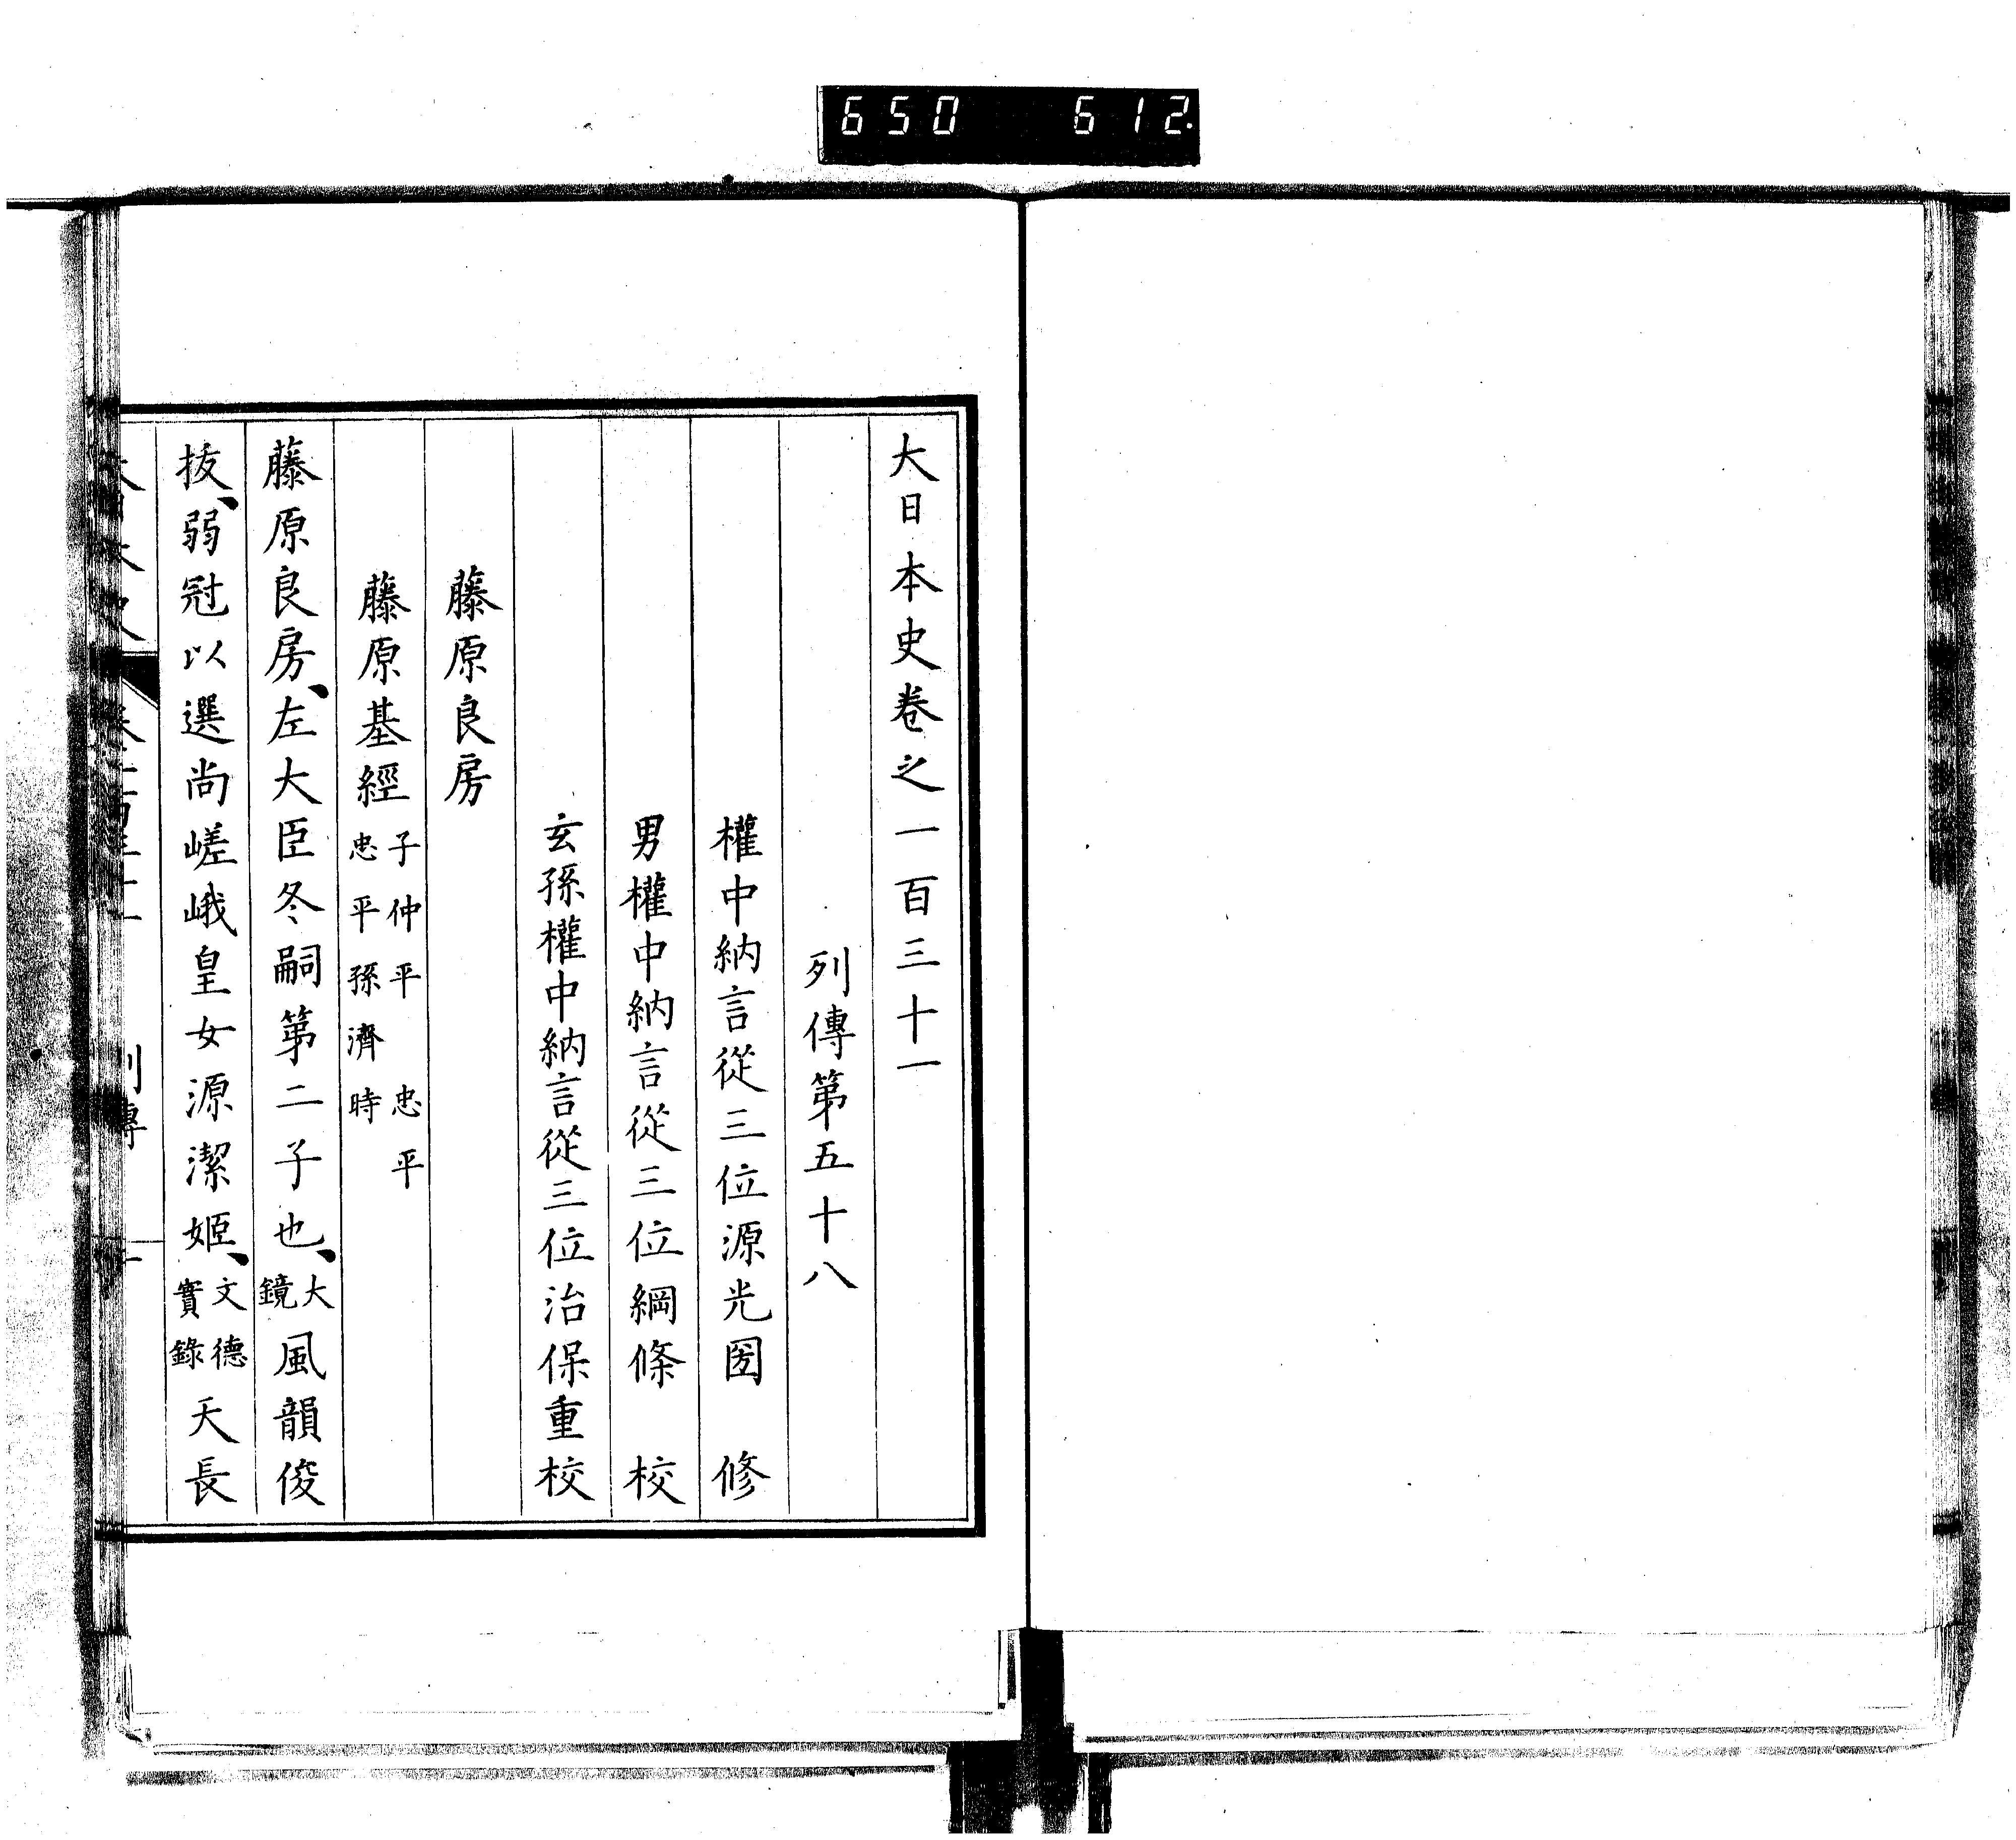 650 612.
大日本史卷之一百三十一
列傳第五十八
權中納言從三位源光圀 修
男權中納言從三位綱條 校
玄孫權中納言從三位治保重校
藤原良房
藤原基經
子仲平 忠平
忠平孫濟時
藤原良房、左大臣冬嗣第二子也、大鏡風韻俊
拔、弱冠以選尚嵯峨皇女源潔姬、文德實錄天長
列傳